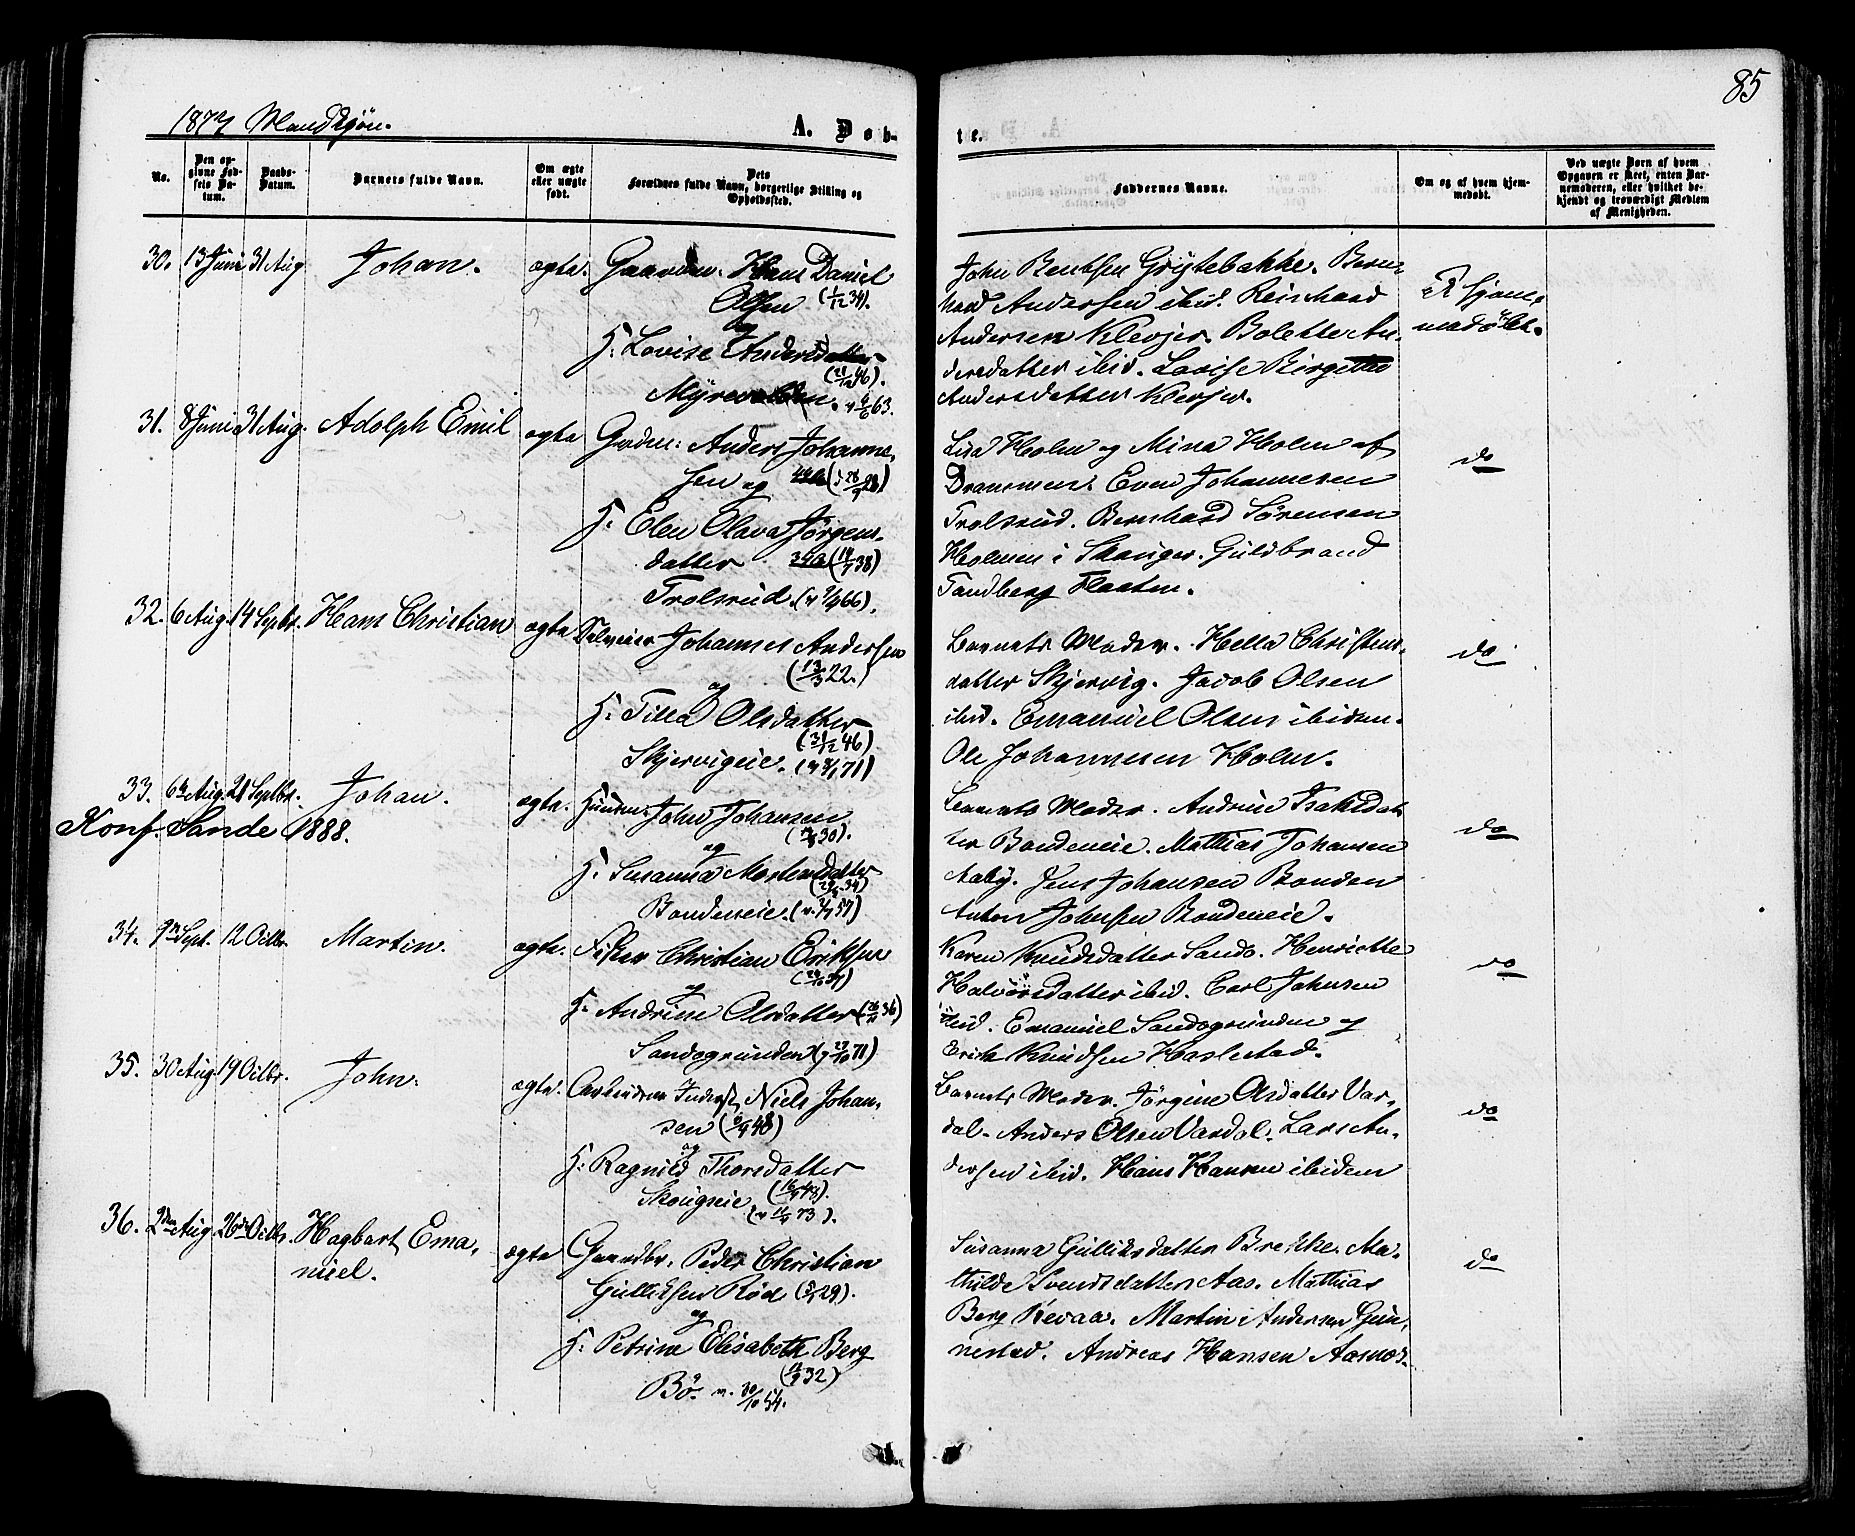 85
1874 Mandkjøn.
A. Døb-
te.
No.
Den op-
givne Fød-
sels Da-
tum.
Daabs-
Datum.
Barnets fulde Navn.
Om ægte
eller uægte
født.
Dets
Forældres fulde Navn, borgerlige Stilling og
Opholdssted.
Faddernes Navne.
Om og af hvem hjem-
medøbt.
Ved uægte Børn af hvem
Opgaven er skeet, enten Bar-
nemoderen, eller hvilket be-
kjendt og troværdigt Medlem
af Menigheden.
30. 13 Juni 31 Aug Johan. ægte. Hans Daniel
Olsen (1/12 34).
og
H: Lovise Andersdatter
(21/12 46).
63.
John Bentsen Grytebakke. Bern-
hard Andersen ibid. Reinhard
Andersen Klevjer. Bolette An-
dersdatter ibid. Lovise Birgitte
Andersdatter Klevjer.
hjem-
medøbt.
31. 8 Juni 31 Aug. Adolph Emil ægte Anders Johanne-
sen og
H: Elen Olava Jørgens-
datter 38)
Trolsrud.
Lisa Holm og Mina Holm af
Drammen. Even Johannesen
Trolsrud. Bernhard Sørensen
Holmen i Skouger. Guldbrand
Tandberg Flaaten.
do
32. 6 Aug. 14 Septbr. Hans Christian ægte Johannes Andersen
(13/3 22.)
og
H: Tilla Olsdatter
(31/12 46)
Skjervigeie. 71)
Barnets Moder. Hella Christens-
datter Skjervig. Jacob Olsen
ibid. Emanuel Olsen ibidem.
Ole Johannesen Holm.
do
33. 6te Aug. 21 Septbr. Johan. ægte. John Johansen
30).
og
H: Susanna Mortensdatter
34)
Bondeneie. 57)
Konf. Sande 1888.
Barnets Moder. Andrine Isaksdat-
ter Bondeneie. Mathias Johansen
Aaby. Jens Johansen Bonden
Anton Johnsen Bondeneie.
do
34. 9de Sept. 12 Octbr. Martin. ægte. Fisker Christian Eriksen
og
H: Andrine Olsdatter 36)
Sandsgrunden 71)
Karen Knudsdatter Sando. Henriette
Halvorsdatter ibid. Carl Johnsen
ibid. Emanuel Sandsgrunden og
Erik Knudsen Haslestad.
do
35. 30 Aug. 19 Octbr. John. ægte. Niels Johan-
sen
og
H: Ragnild Thorsdatter
Skougseie 73).
Barnets Moder. Jørgine Olsdatter Var-
dal. Anders Olsen Vardal. Lars An-
dersen ibid. Hans Hansen ibidem
do
36. 2den Aug. 26de Octbr. Hagbart Ema-
nuel. ægte Gaardbr. Peder Christian
Gulliksen Rød 29).
og
H: Petrine Elisabeth Berg
32)
Bø. v. 30/10 54.
Susanna Gulliksdatter Brekke. Ma-
thilde Svendsdatter Aas. Mathias
Berg Revaa. Martin Andersen Gun-
nestad. Andreas Hansen Aasnes.
do